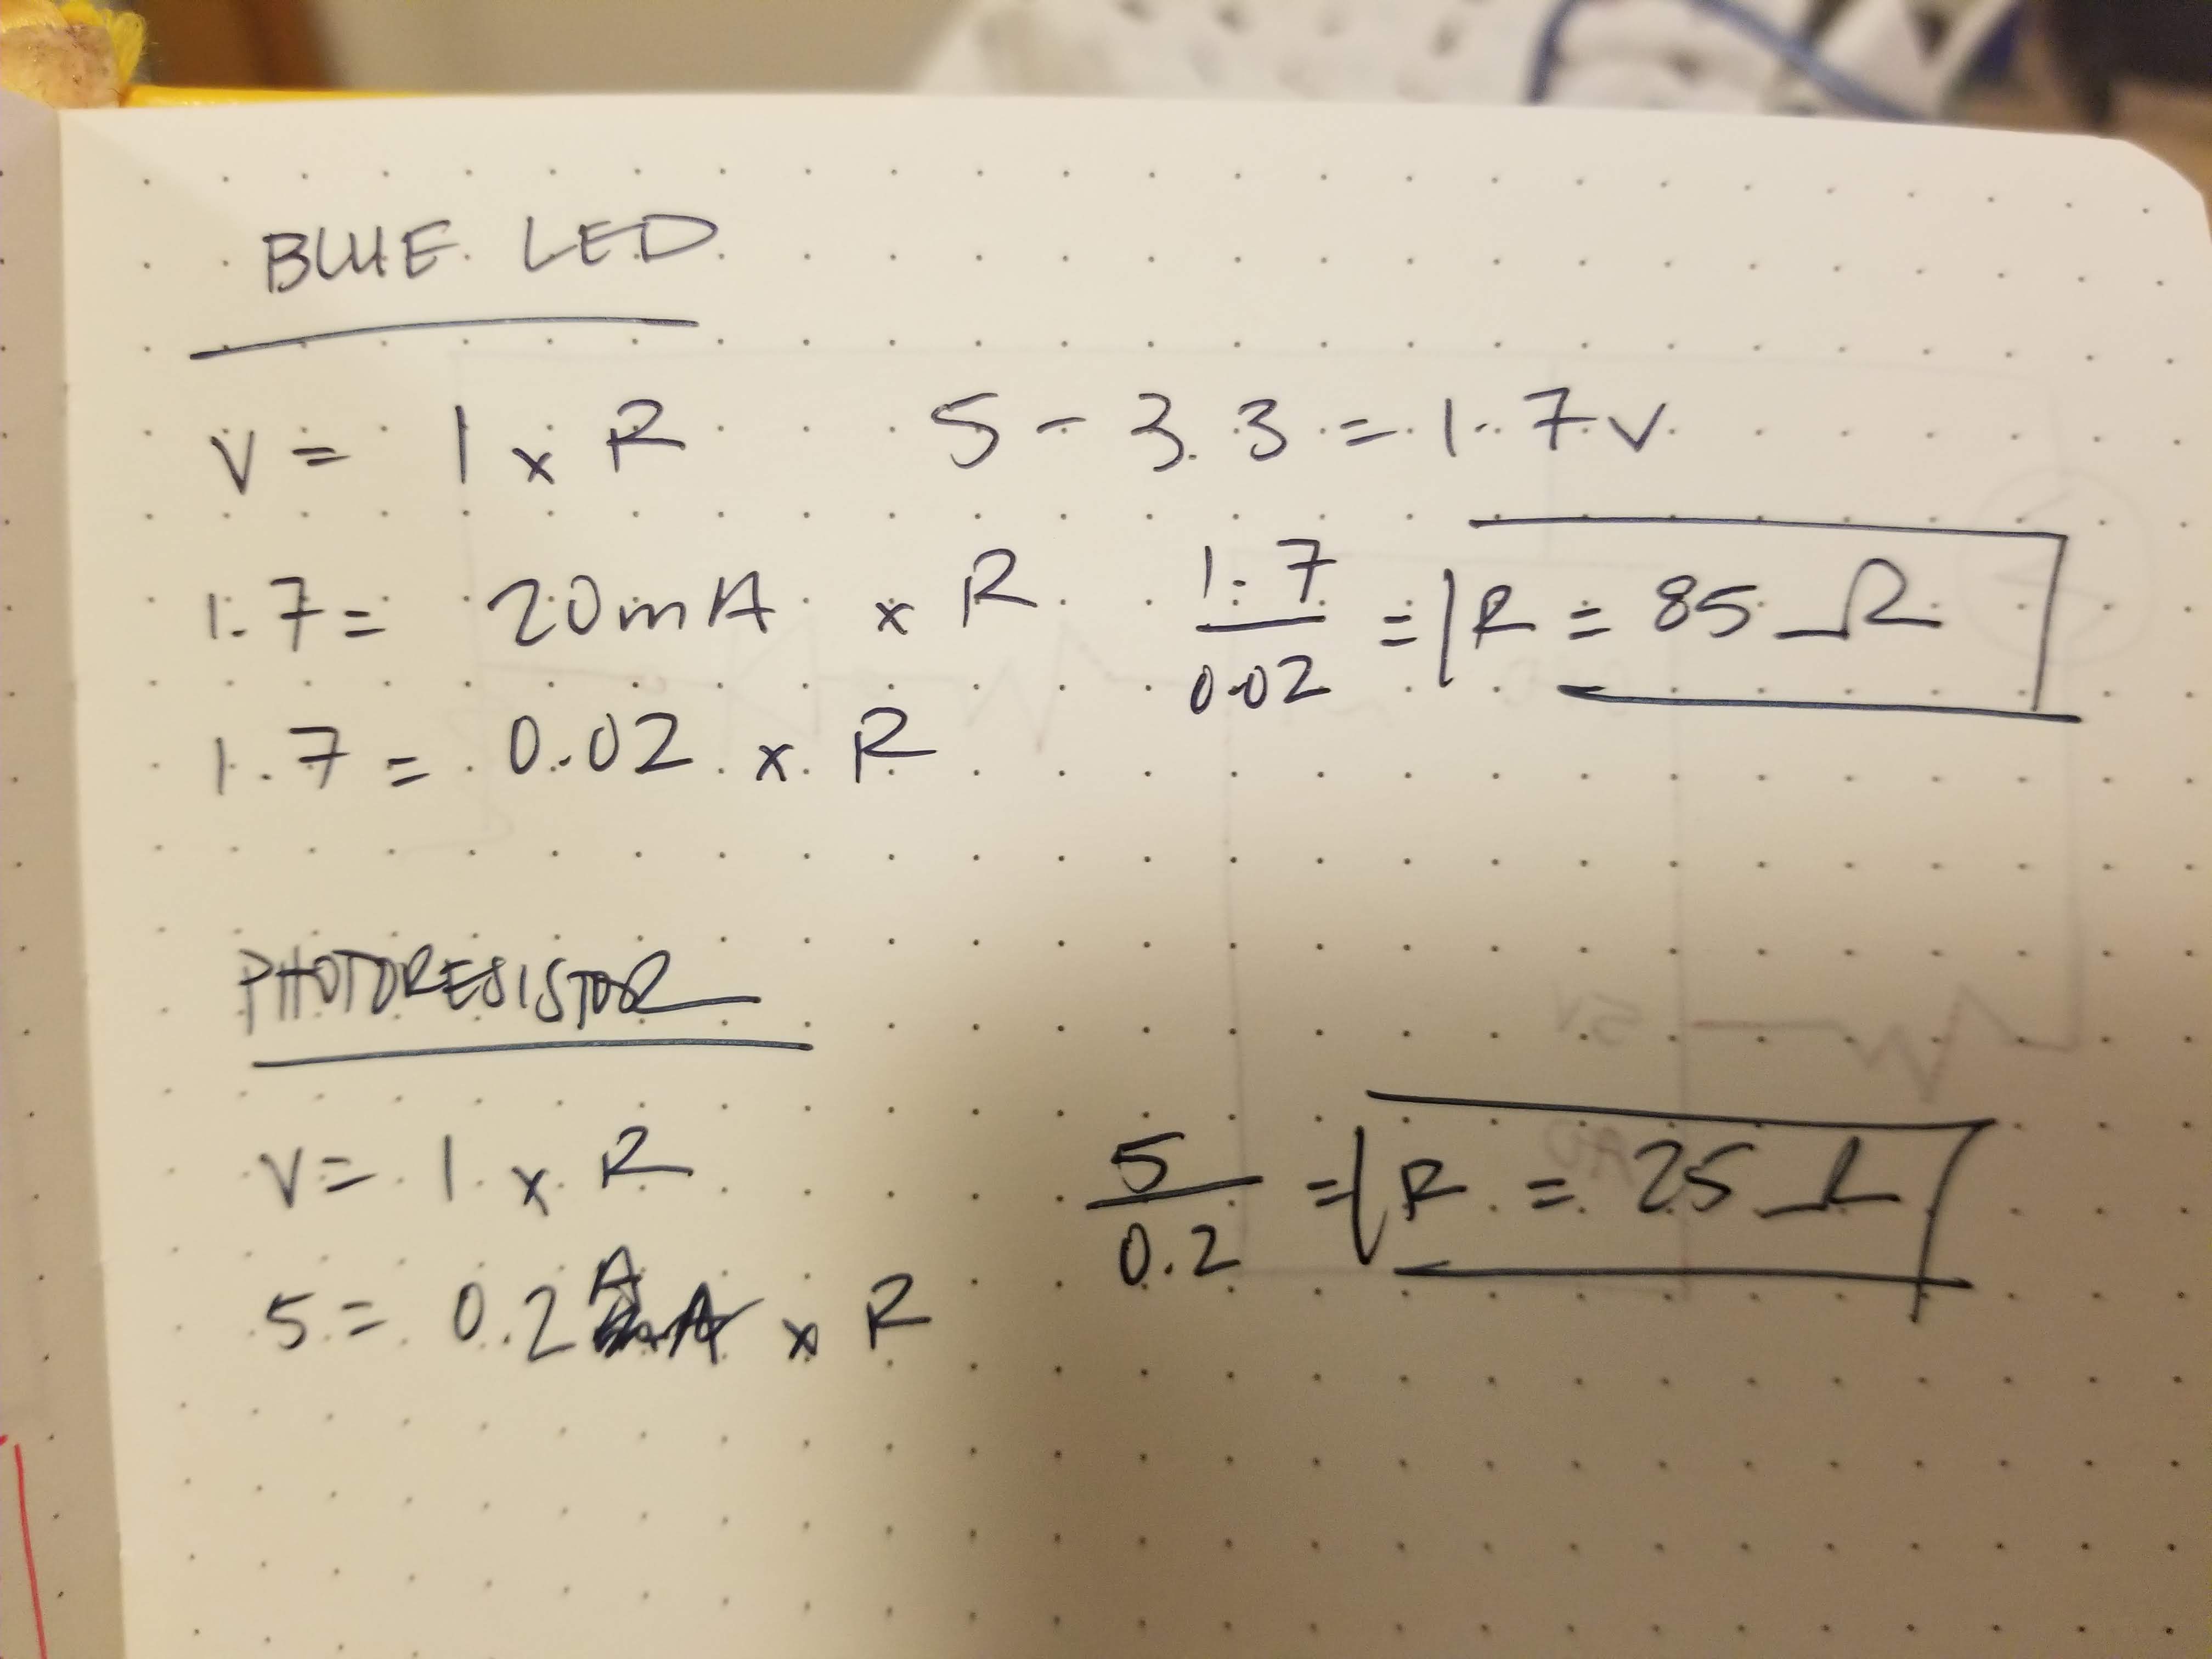 BLUE LED
V = I x R 5 - 3.3 = 1.7V
1.7 = 20mA x R 1.7/0.02 = R = 85 Ω
1.7 = 0.02 x R
PHOTORESISTOR
V = I x R 5/0.2 = R = 25 Ω
5 = 0.2A x R